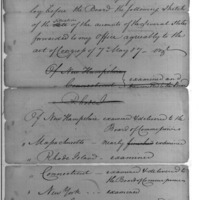 lay before the Board the following sketch
of the state of the accounts of the several States
forwarded to my Office, agreeably to the
act of Congress of 7th May 17
Of New Hampshire
Connecticut examined and
Rhode I
Of New Hampshire examined & delivered to the
Board of Commissioners
Massachusetts nearly examined
Rhode Island examined
Connecticut examined & delivered to
the Board of Commissioners
New York examined